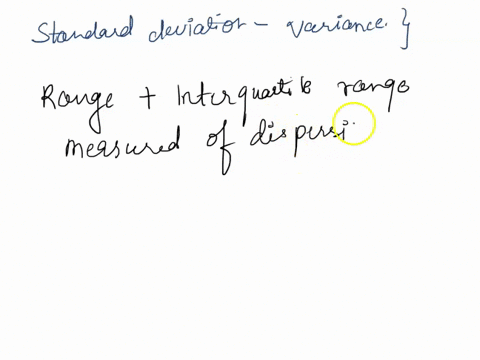 Standard deviation - variance }
Range + Interquartile range
measured of dispersi